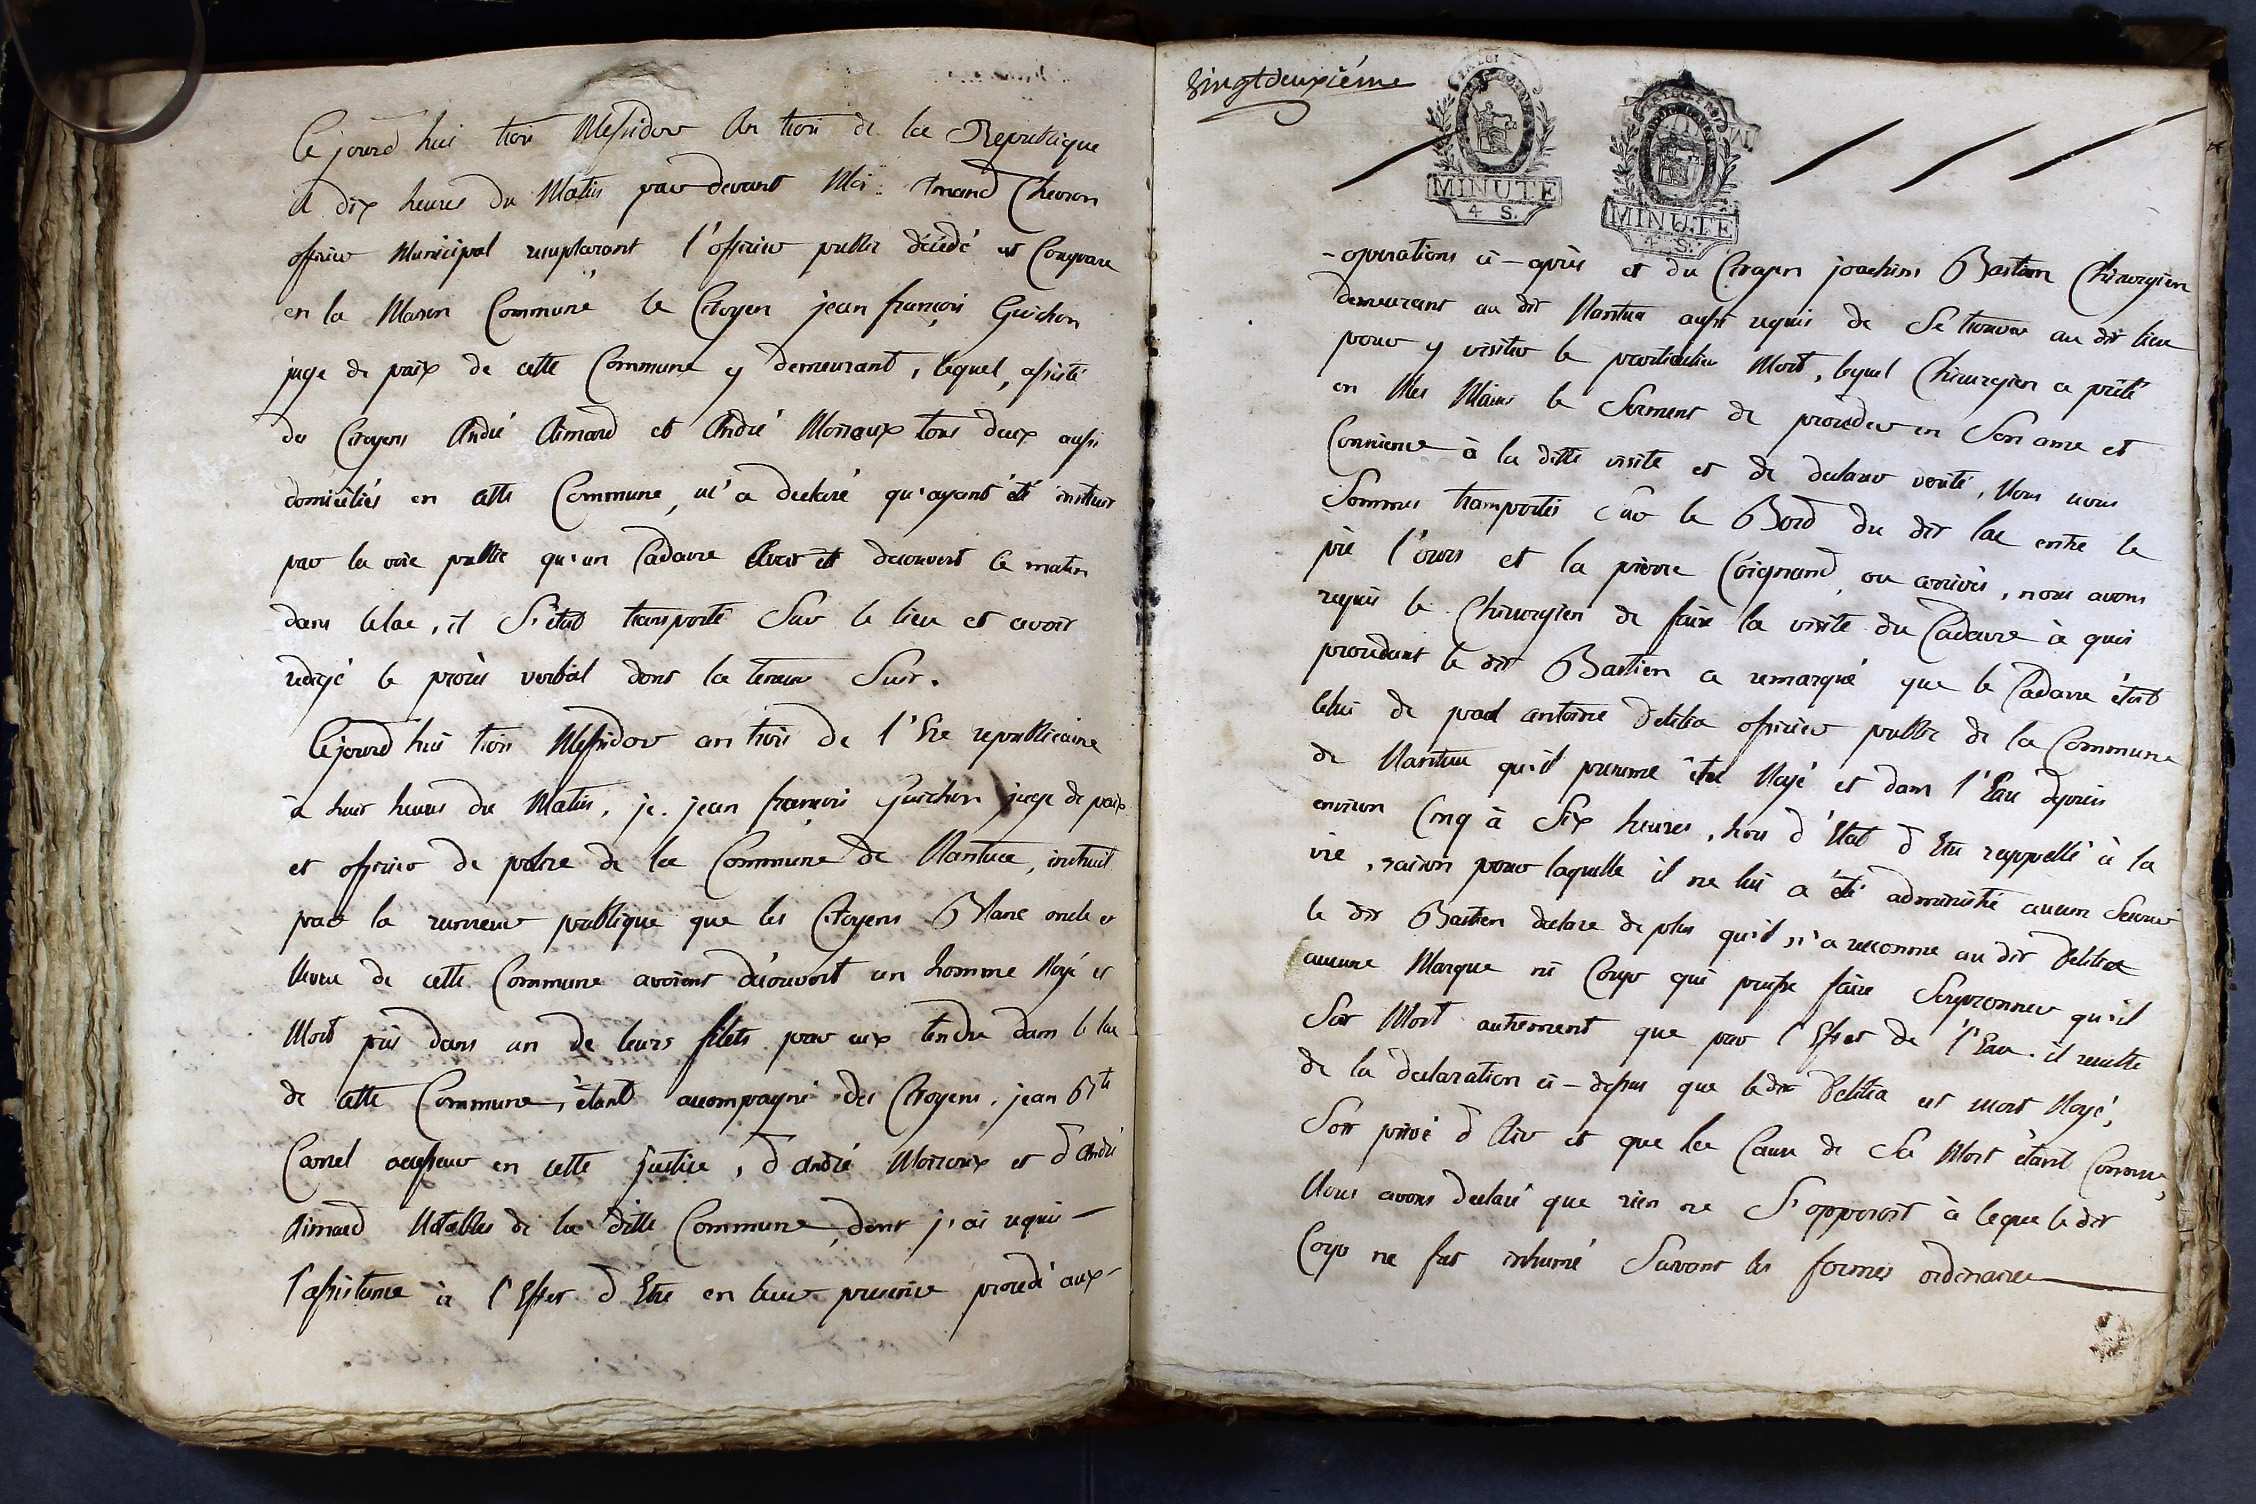 Cejourd hui trois Messidor An trois de la Republique
a dix heures du Matin par devant Moi Chevron
officier Municipal remplacant l'officier public décédé est Comparu
en la Maison Commune le Citoyen jean françois Guichon
juge de paix de cette Commune y demeurant, lequel, assisté
des Citoyens André Aimard et André Moiroux tous deux aussi
domiciliés en cette Commune, m'a declaré qu'ayant été instruit
par la voie public qu'un Cadavre avoit été decouvert ce matin
dans le lac, il S'étoit transporté Sur le lieu et avoir
redigé le procès verbal dont la teneur Suit.
Cejourd hui trois Messidor an trois de l'Ere republicaine
à huit heures du Matin, je jean françois Guichon juge de paix
et officier de police de la Commune de Nantua, instruit
par la rumeur publique que les Citoyens Blanc oncle et
Neveu de cette Commune avoient découvert un homme Noyé et
Mort pris dans un de leurs filets par eux tendu dans le lac
de cette Commune, étant accompagné des Citoyens, jean Bte
Carrel assesseur en cette justice, d'André Moiroux et d'André
Aimard Notables de la ditte Commune, dont j'ai requis
l'assistance à l'Effet d'Etre en leur presence procedé aux
Vingtdeuxiéme
MINUTE
4 S.
MINUTE
4 S.
-operations ci-après et du Citoyen joachim Bastien Chirurgien
demeurant au dit Nantua aussi requis de Se trouver au dit lieu
pour y visiter le particulier Mort, lequel Chirurgien a prêté
en Mes Mains le Serment de proceder en Son ame et
Conscience à la ditte visite et de declarer verité, Nous nous
Sommes transportés Sur le Bord du dit lac entre le
pié l'ours et la pierre Coignand, ou arrivés, nous avons
requis le Chirurgien de faire la visite du Cadavre à quoi
procedant le dit Bastien a remarqué que le Cadavre étoit
Celui de paul antoine Delilia officier public de la Commune
de Nantua qu'il presume être Noyé et dans l'Eau depuis
environ Cinq à Six heures, hors d'Etat d'Etre rappellé à la
vie, raison pour laquelle il ne lui a été administré aucun Secours
le dit Bastien declare de plus qu'il n'a reconnu au dit Delilia
aucune Marque ni Coups qui puisse faire Soupçonner qu'il
Soit Mort autrement que par l'Effet de l'Eau. il resulte
de la declaration ci-dessus que le dit Delilia est mort Noyé,
Soit privé d'Air et que la Cause de Sa Mort étant Connue,
Nous avons declaré que rien ne S'opposoit à ceque le dit
Corps ne fut inhumé Suivant les formes ordinaires